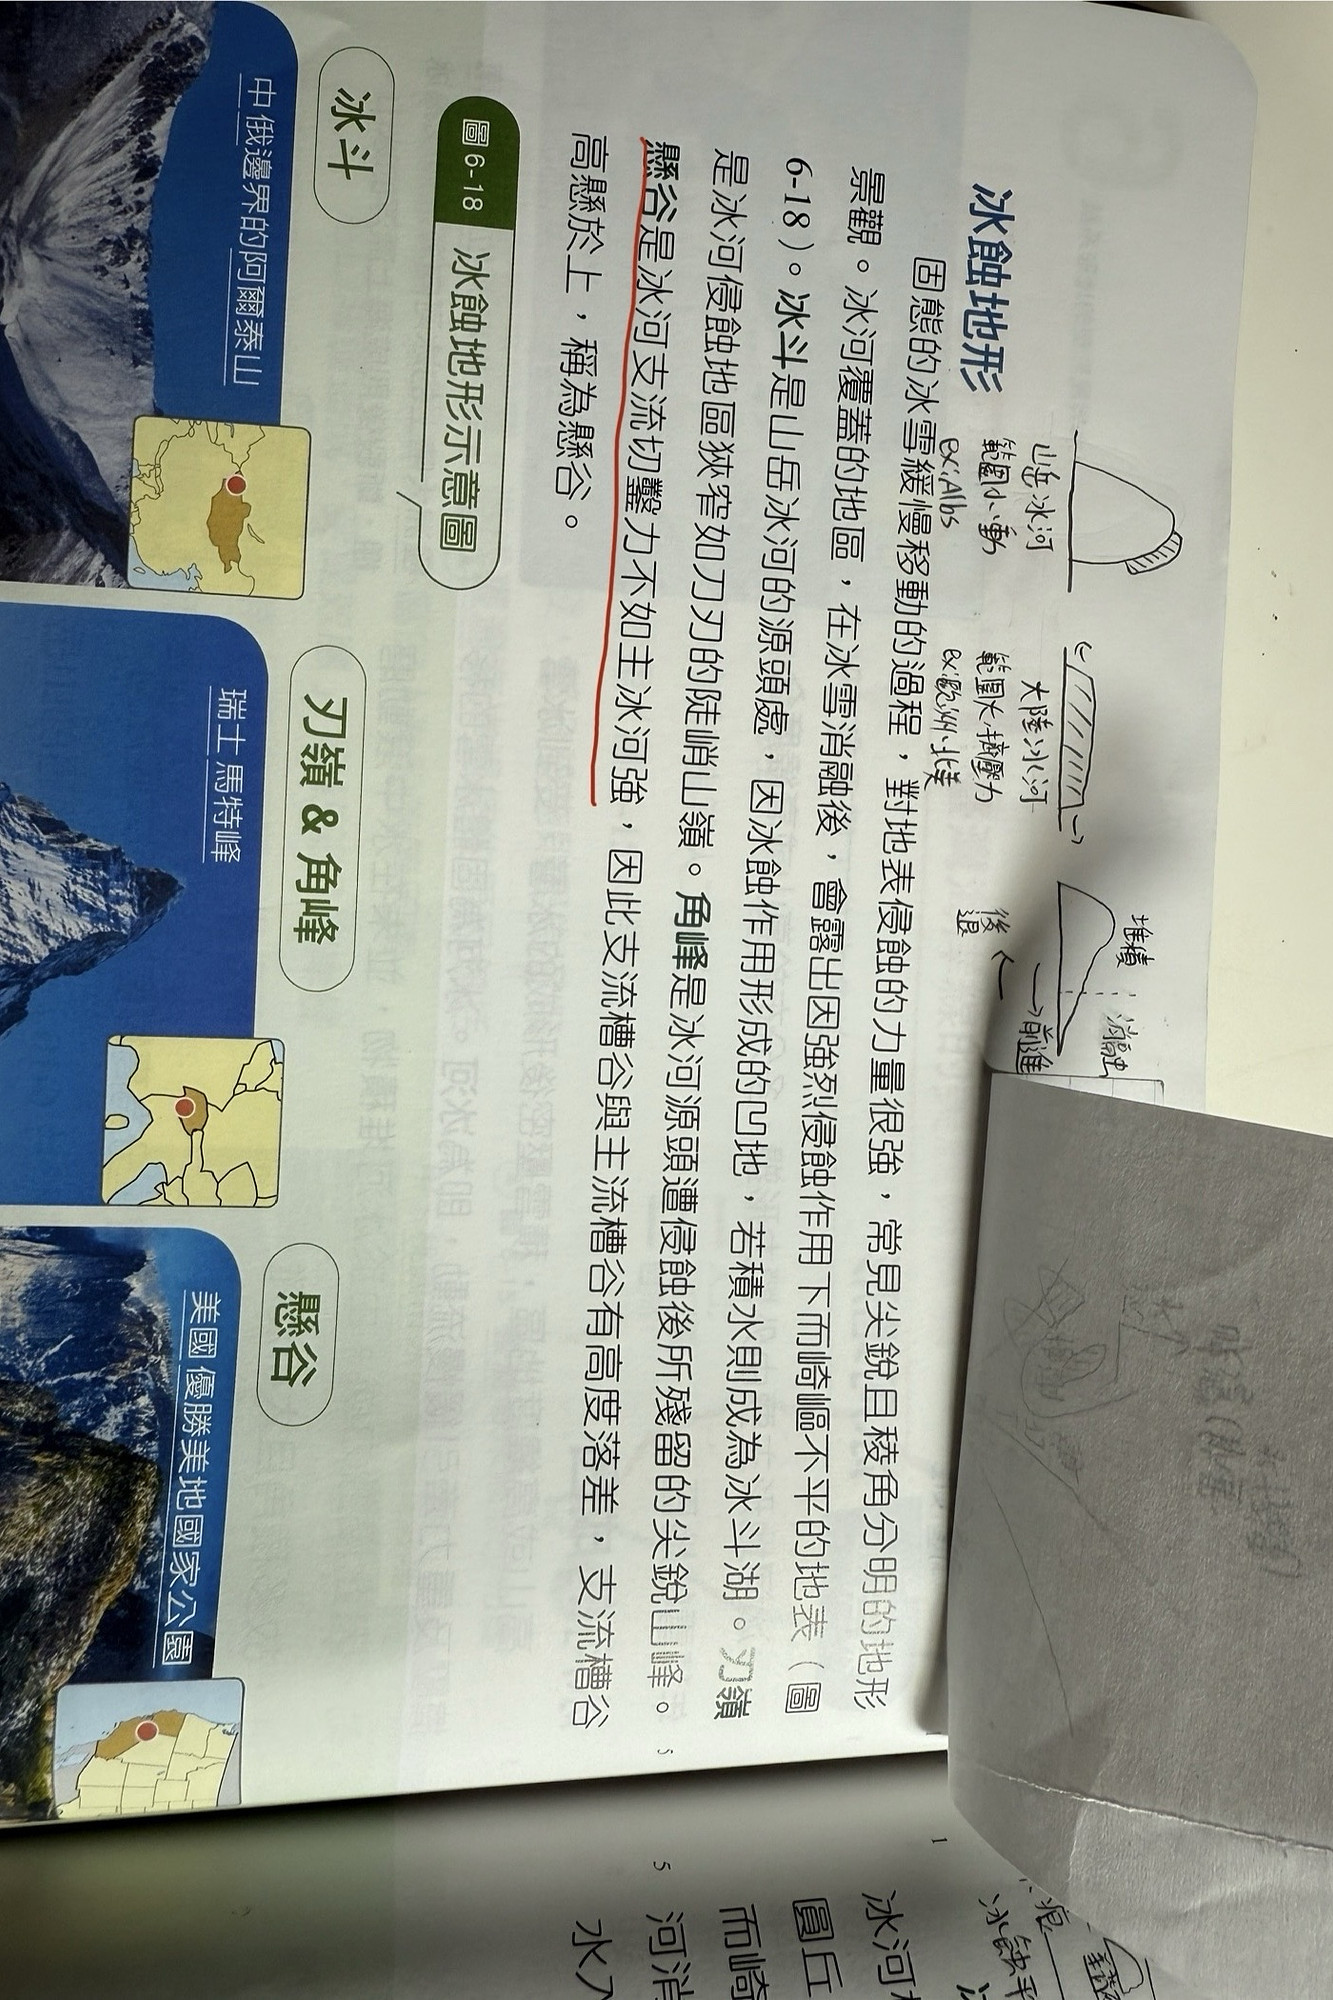 冰蝕地形
山岳冰河
範圍小、動
ex: Albs
大陸冰河
範圍大、擠壓力
ex: 歐洲、北美
堆積
消融
前進
後退
固態的冰雪緩慢移動的過程，對地表侵蝕的力量很強，常見尖銳且稜角分明的地形
景觀。冰河覆蓋的地區，在冰雪消融後，會露出因強烈侵蝕作用下而崎嶇不平的地表（圖
6-18）。冰斗是山岳冰河的源頭處，因冰蝕作用形成的凹地，若積水則成為冰斗湖。刃嶺
是冰河侵蝕地區狹窄如刀刃的陡峭山嶺。角峰是冰河源頭遭侵蝕後所殘留的尖銳山峰。
懸谷是冰河支流切鑿力不如主冰河強，因此支流槽谷與主流槽谷有高度落差，支流槽谷
高懸於上，稱為懸谷。
5
圖 6-18 冰蝕地形示意圖
冰斗
中俄邊界的阿爾泰山
刃嶺 & 角峰
瑞士馬特峰
懸谷
美國優勝美地國家公園
1
5
冰河
圓丘
而崎
河消
水入